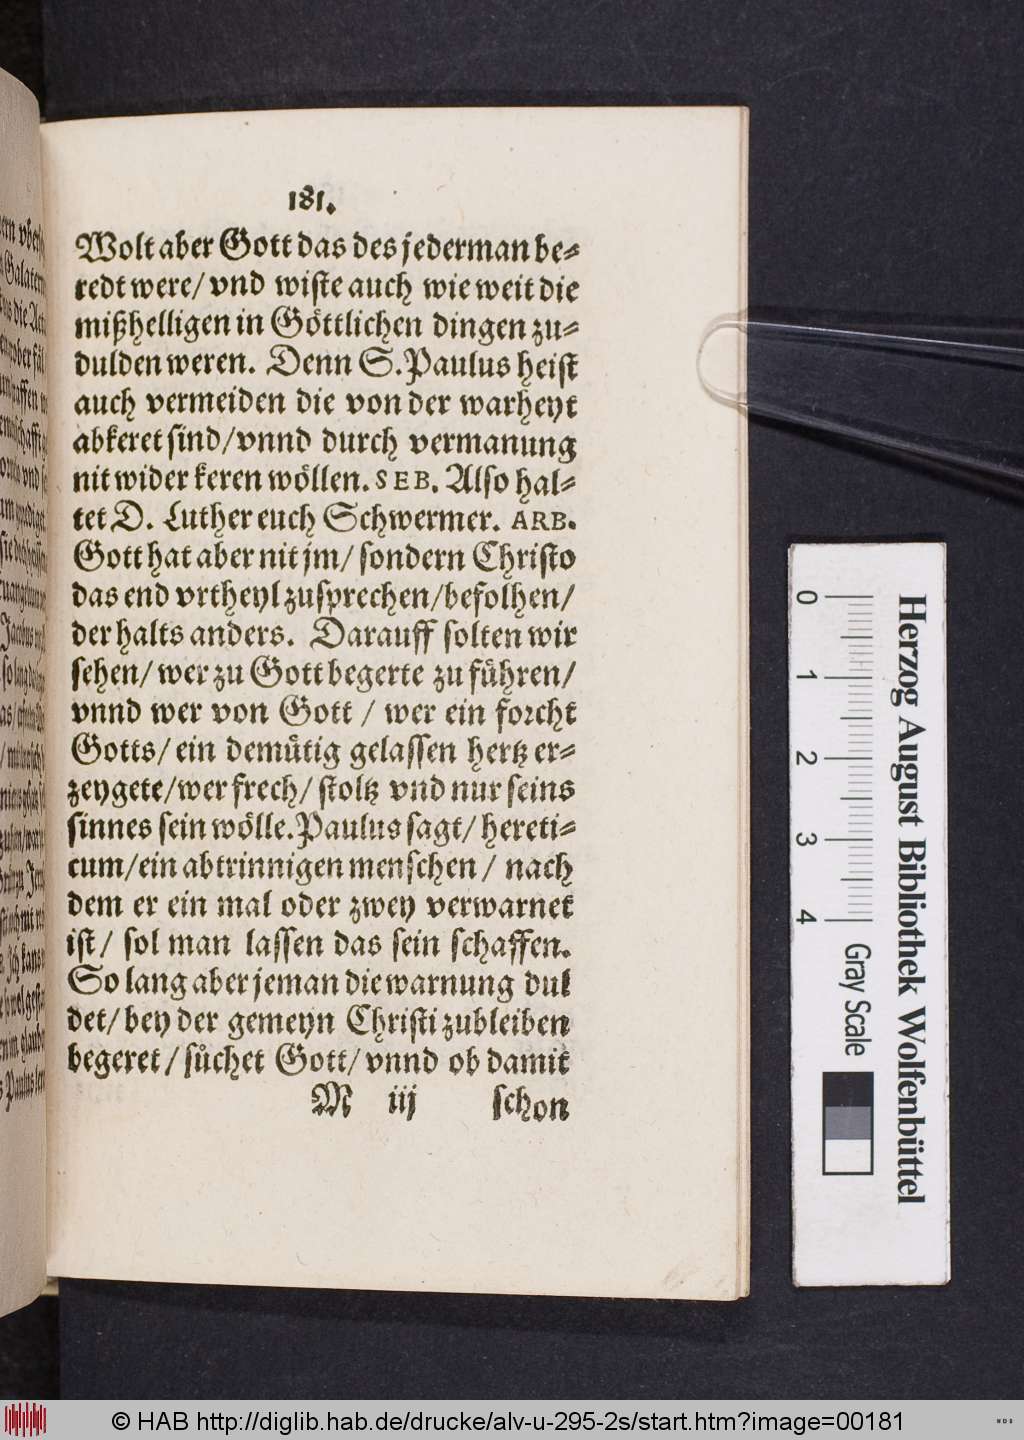 181.
Wolt aber Gott das des jederman be⸗
redt were/ vnd wiste auch wie weit die
mißhelligen in Göttlichen dingen zu⸗
dulden weren. Denn S. Paulus heist
auch vermeiden die von der warheyt
abkeret sind/ vnnd durch vermanung
nit wider keren wöllen. SEB. Also hal⸗
tet D. Luther euch Schwermer. ARB.
Gott hat aber nit jm/ sondern Christo
das end vrtheyl zusprechen/ befolhen/
der halts anders. Darauff solten wir
sehen/ wer zu Gott begerte zu führen/
vnnd wer von Gott / wer ein forcht
Gotts/ ein demütig gelassen hertz er⸗
zeygete/ wer frech/ stoltz vnd nur seins
sinnes sein wölle. Paulus sagt/ hereti⸗
cum/ ein abtrinnigen menschen / nach
dem er ein mal oder zwey verwarnet
ist/ sol man lassen das sein schaffen.
So lang aber jeman die warnung dul
det/ bey der gemeyn Christi zubleiben
begeret / sůchet Gott/ vnnd ob damit
M iij schon
Herzog August Bibliothek Wolfenbüttel
0 1 2 3 4 Gray Scale
© HAB http://diglib.hab.de/drucke/alv-u-295-2s/start.htm?image=00181